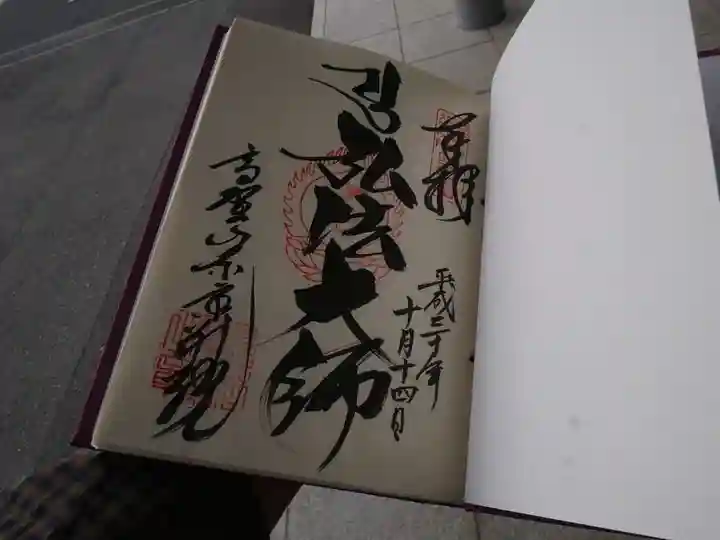 奉拝
平成三十年
十月十四日
弘法大師
高野山東京別院